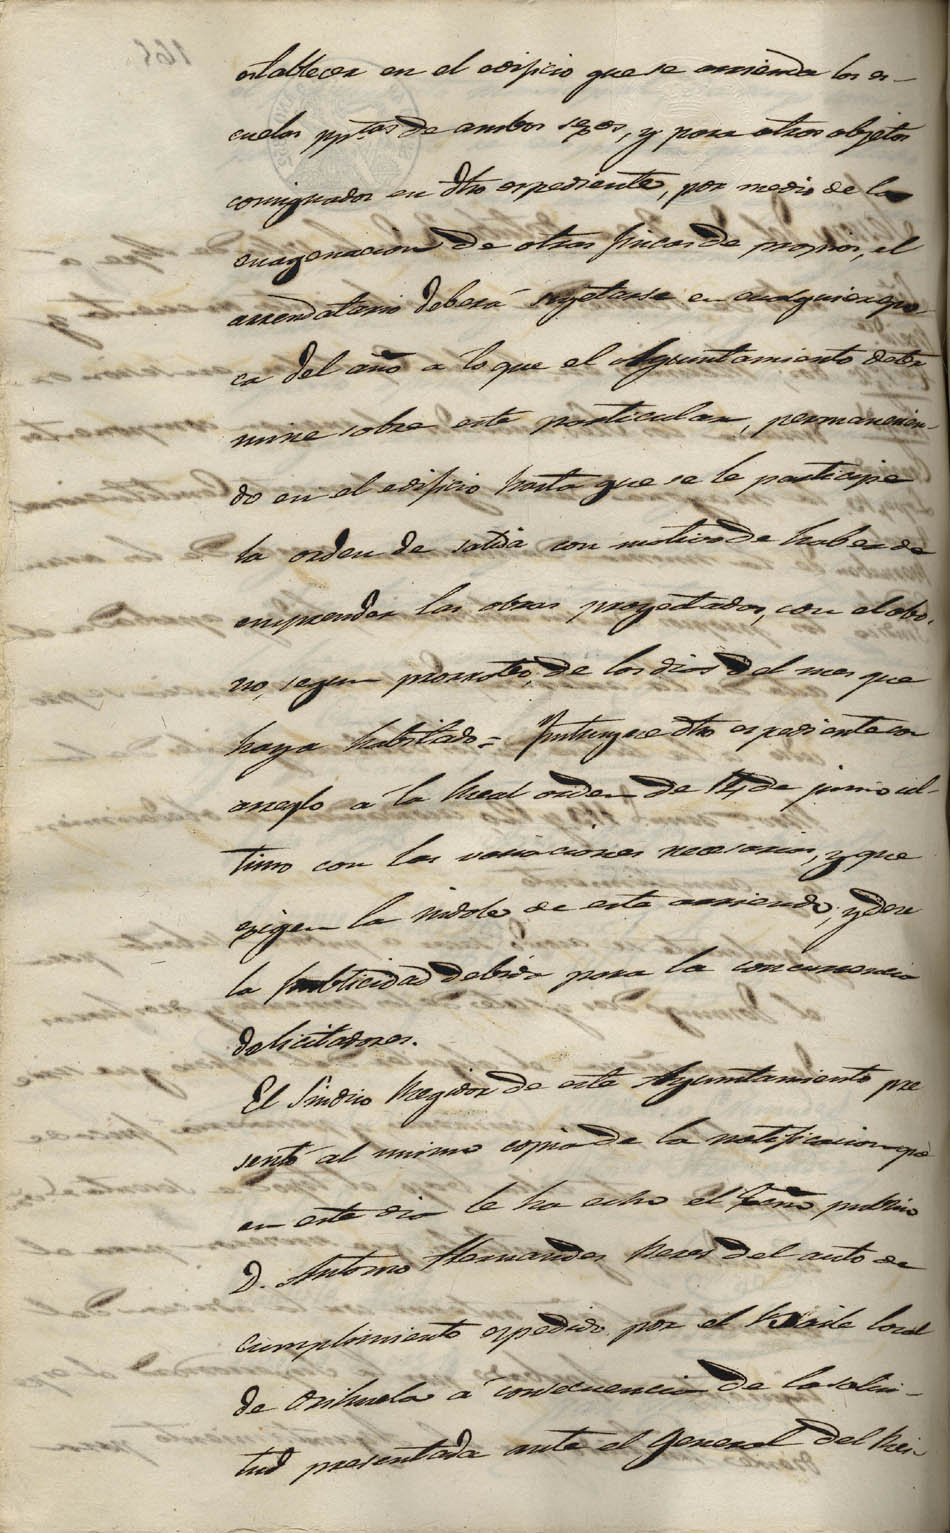 establecer en el edificio que se arrienda las es-
cuelas ppcas de ambos sexos, y para otros objetos
consignados en dho espediente, por medio de la
enagenacion de otras fincas de propios, el
arrendatario deberá sugetarse en cualquier epo
ca del año a lo que el Ayuntamiento deter
mine sobre este particular, permanecien-
do en el edificio hasta que se le participe
la orden de salida con motivo de haber de
emprender las obras proyectadas, con el abo-
no, segun prorrateo, de los dias del mes que
haya habitado = Instruyase dho espediente con
arreglo a la Real orden de 14 de junio ul-
timo con las variaciones necesarias, y que
exigen la indole de este arriendo, y dese
la publicidad debida para la concurrencia
de licitadores.
El Sindico Regidor de este Ayuntamiento pre
sentó al mismo copia de la notificacion qe
en este dia le ha echo el Esno publico
D. Antonio Hernandes Peres del auto de
cumplimiento espedido por el Baile local
de Orihuela a consecuencia de la solici-
tud presentada ante el General del Rei-